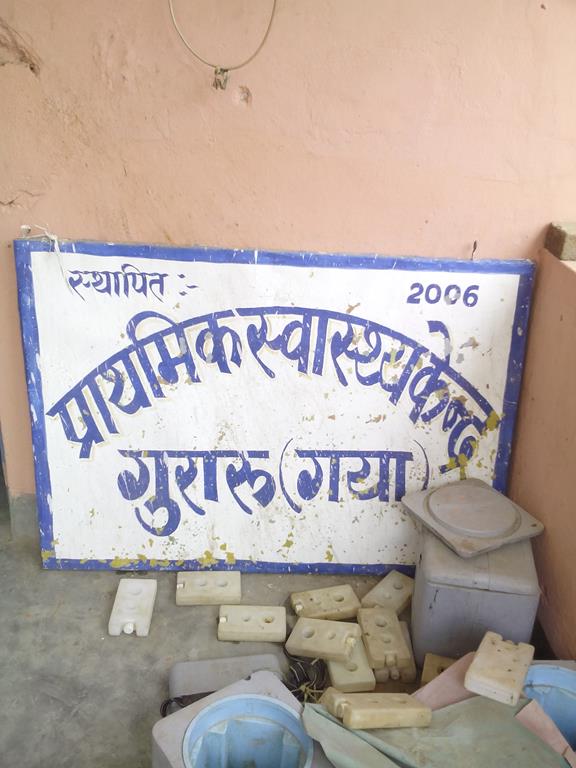 स्थापित :- 2006
प्राथमिक स्वास्थ्य केन्द्र
गुरारू (गया)